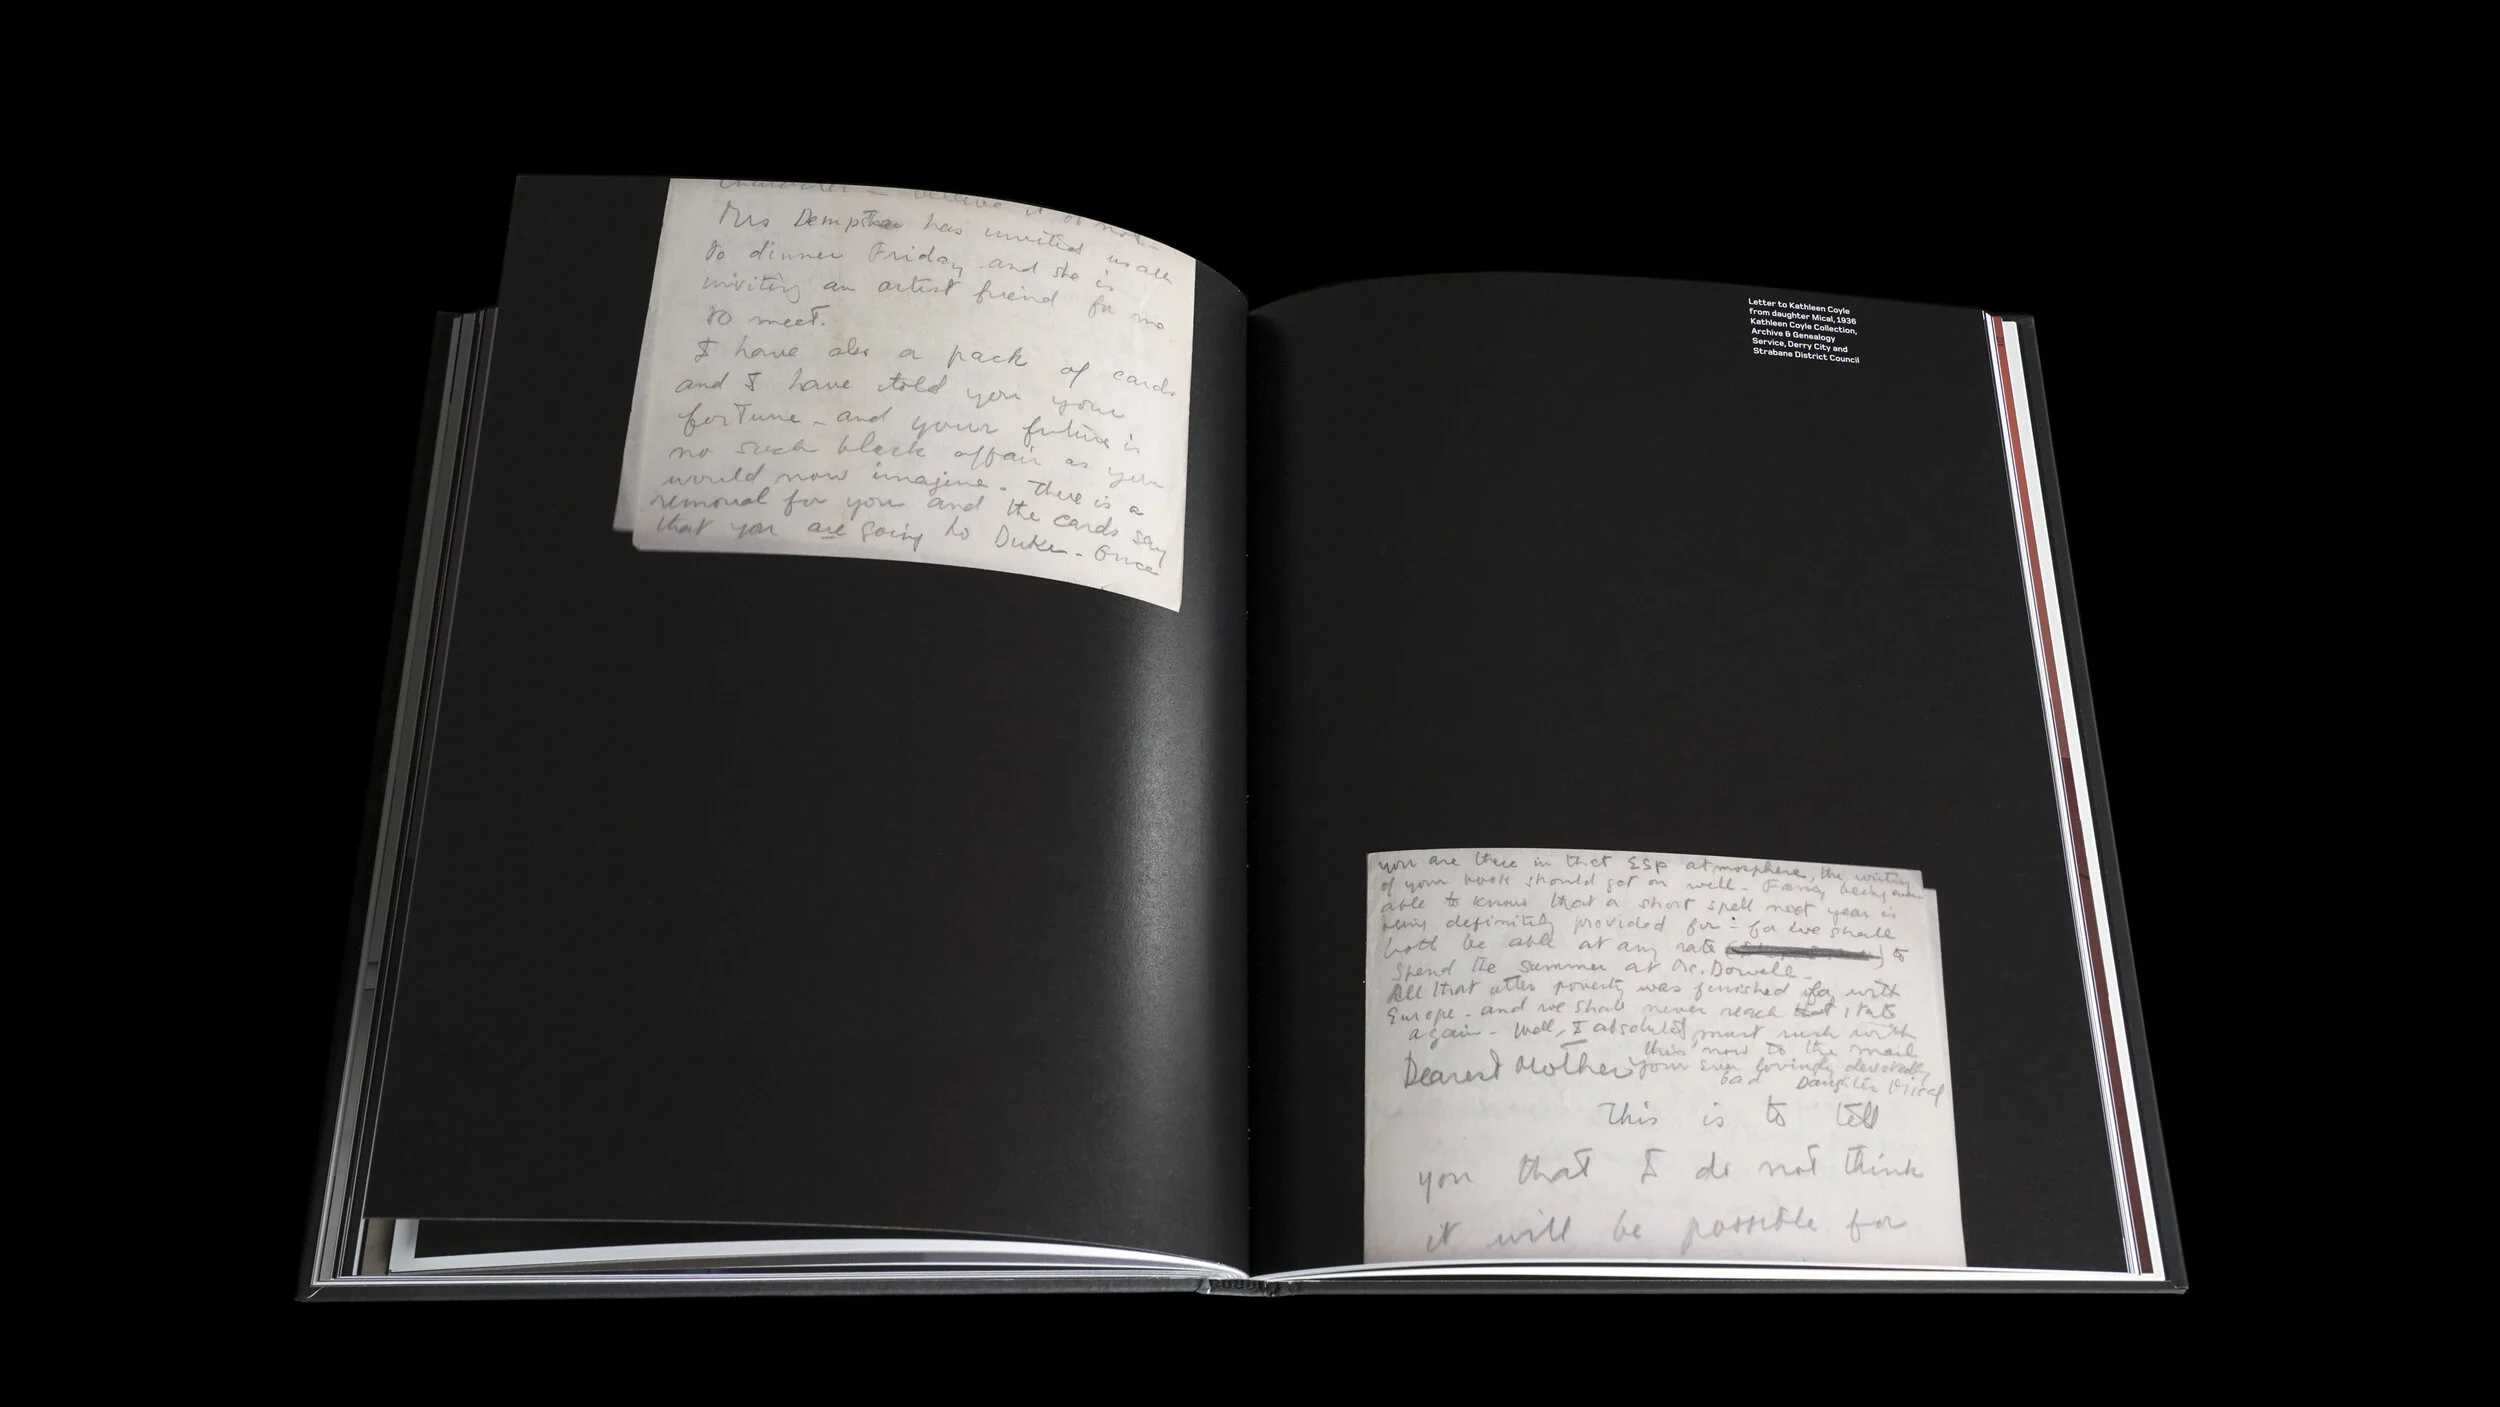 believe it or not
Mrs has invited us all
to dinner Friday and she is
inviting an artist friend for me
to meet.
I have also a pack of cards
and I have told you your
fortune - and your future is
no such black affair as you
would now imagine. There is a
removal for you and the cards say
that you are going to Duke - Once
Letter to Kathleen Coyle
from daughter Mical, 1936
Kathleen Coyle Collection,
Archive & Genealogy
Service, Derry City and
Strabane District Council
you are there in that ESP atmosphere, the writing
of your book should get on well - Fancy being even
able to know that a short spell next year is
being definitely provided for - for we shall
both be able at any rate to
spend the summer at
All that utter poverty was finished for with
Europe - and we shall never reach that state
again - Well, I absolutely must rush with
this now to the mail
Dearest Mother your ever lovingly devotedly
bad Daughter Mical
This is to tell
you that I do not think
it will be possible for